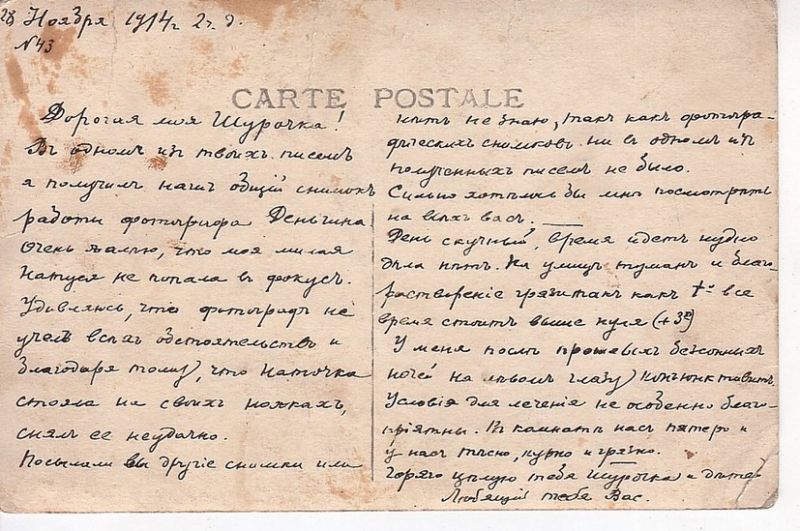 28 Ноября 1914 г. 2 ч. д.
№ 43
CARTE POSTALE
Дорогая моя Шурочка!
Въ одномъ изъ твоихъ писемъ
я получилъ нашъ общій снимокъ
работы фотографа Деньгина.
Очень жалею, что моя милая
Натуся не попала въ фокусъ.
Удивляюсь, что фотографъ не
учелъ всѣхъ обстоятельствъ и
благодаря тому, что Наточка
стояла на своихъ ножкахъ,
снялъ ее неудачно.
Посылали вы другіе снимки или
нѣтъ не знаю, такъ какъ фотогра-
фическихъ снимковъ ни въ одномъ изъ
полученныхъ писемъ не было.
Сильно хотѣлось бы мнѣ посмотрѣть
на всѣхъ васъ.
День скучный, время идетъ нудно
дѣла нѣтъ. На улицѣ туманъ и благо-
раствореніе грязи такъ какъ t° все
время стоитъ выше нуля (+3°)
У меня послѣ прошлыхъ безсонныхъ
ночей на лѣвомъ глазу конъюнктивитъ.
Условія для леченія не особенно благо-
пріятны. Въ комнатѣ насъ пятеро и
у насъ тѣсно, курно и грязно.
Горячо цѣлую тебя Шурочка и дѣтей
Любящій тебя Вас.